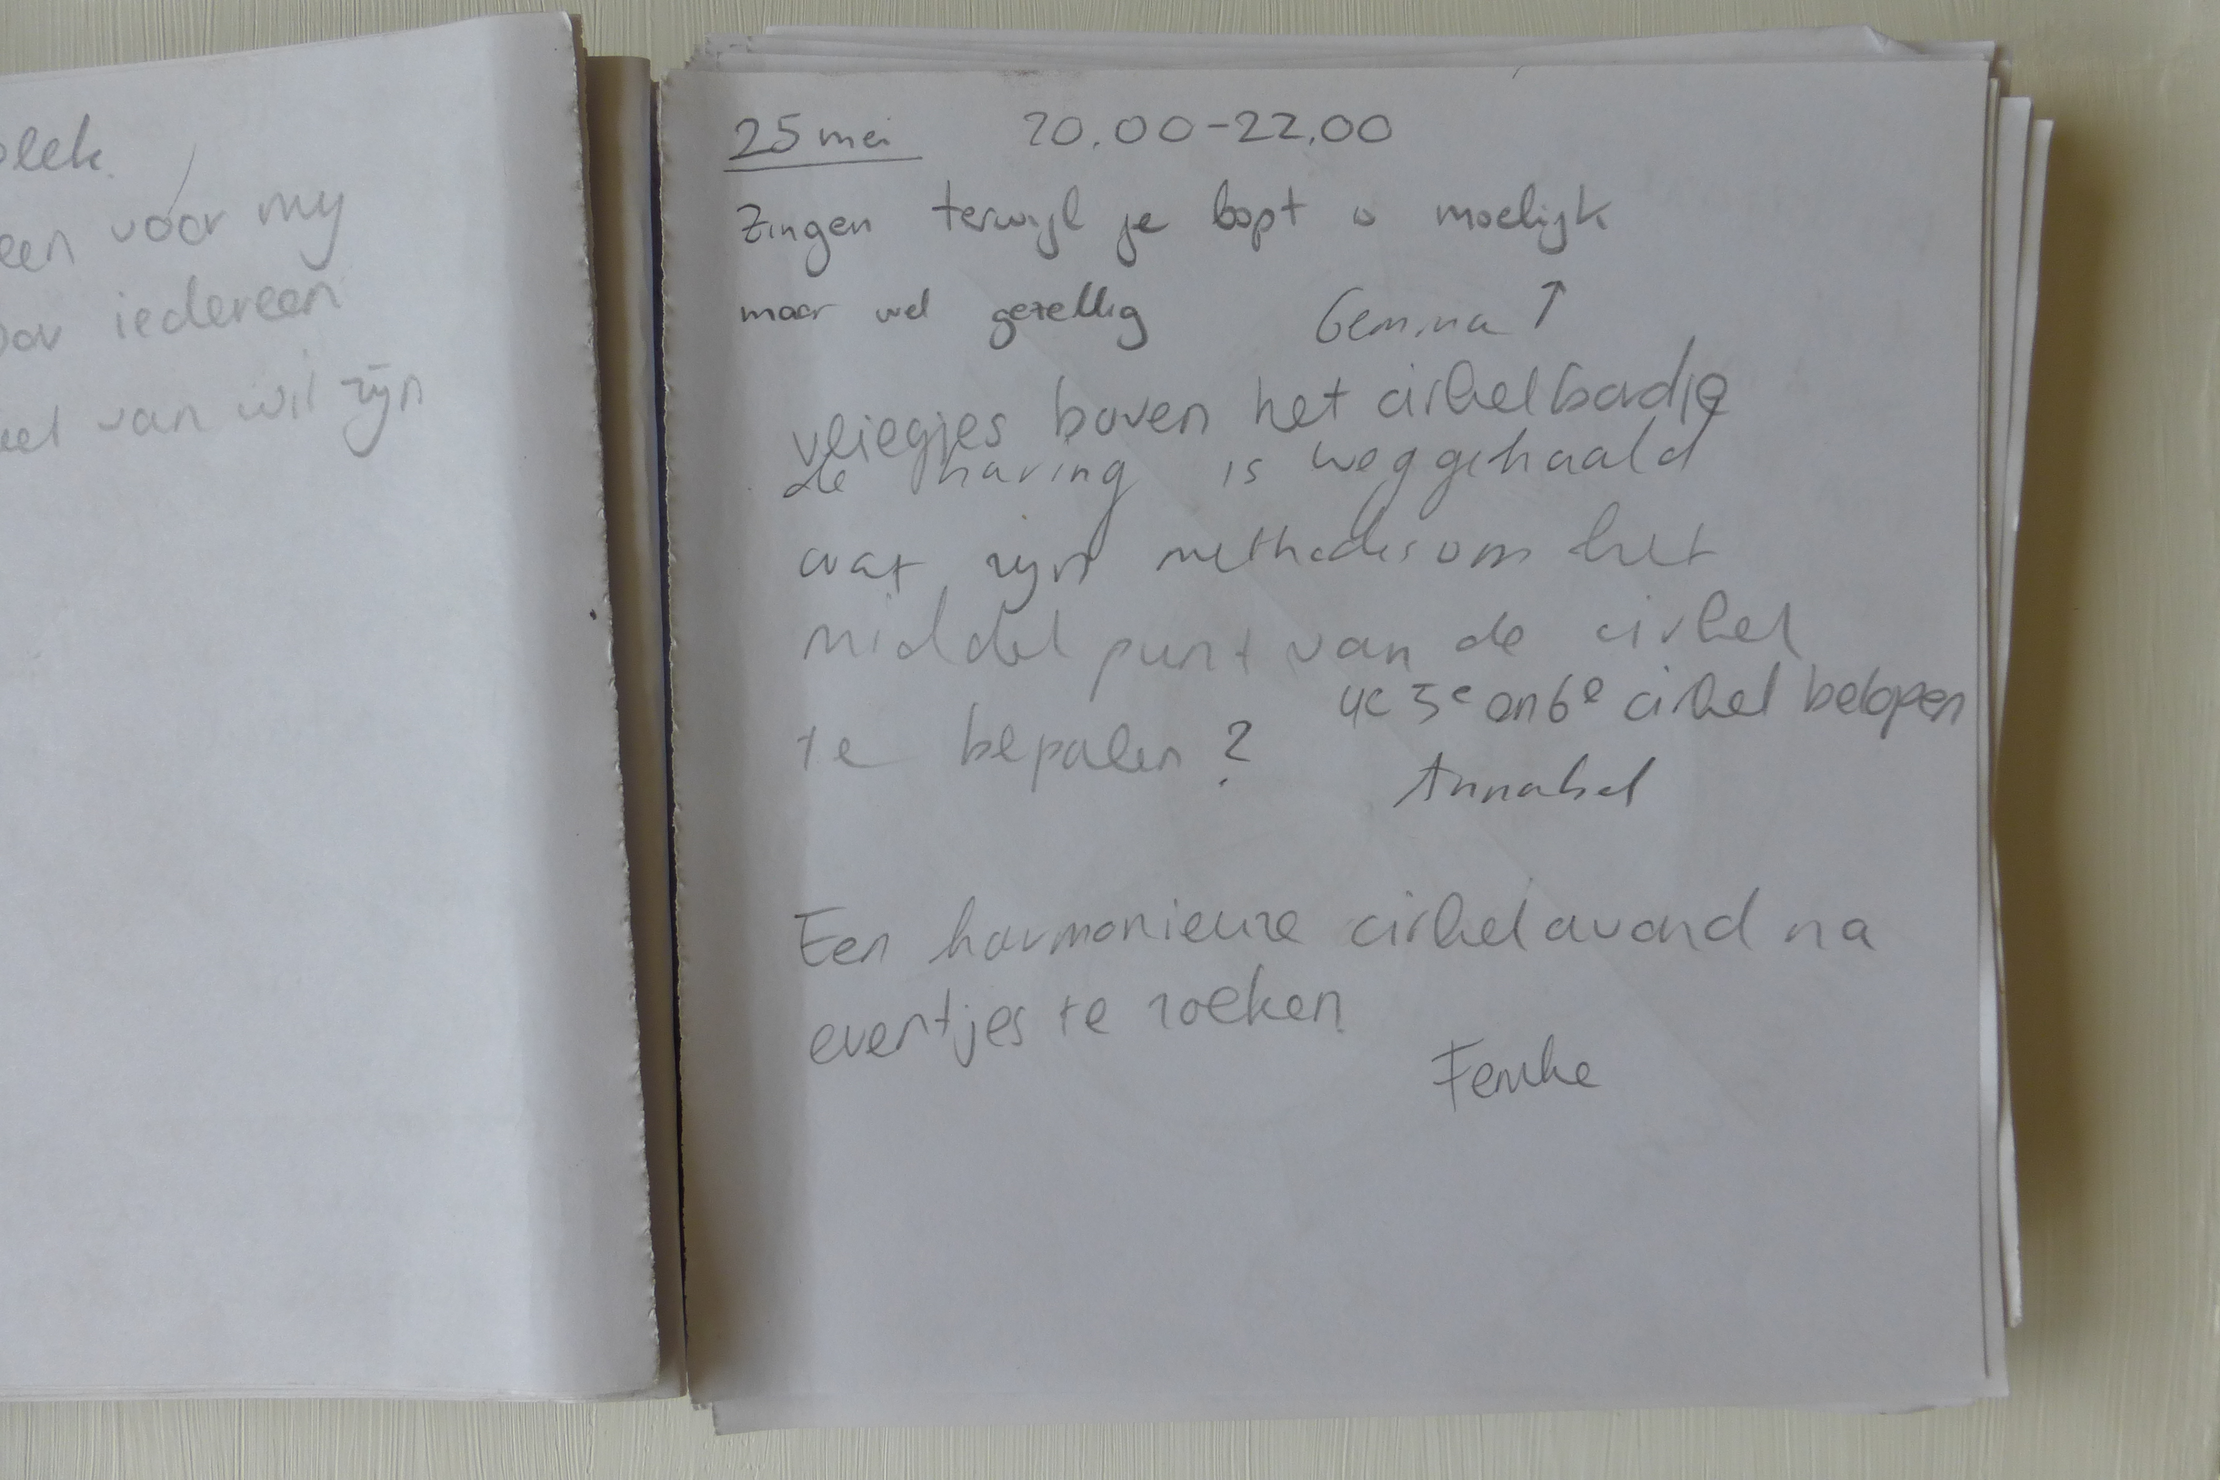 voor my
iedereen
van wil zijn
25 mei 20.00-22.00
Zingen terwijl je loopt is moelijk
maar wel gezellig Gemma ↑
vliegjes boven het cirkelbordje
de haring is weggehaald
wat zijn methodes om het
middelpunt van de cirkel
te bepalen?
4e 5e en 6e cirkel belopen
Annabel
Een harmonieuze cirkelavond na
eventjes te zoeken
Femke